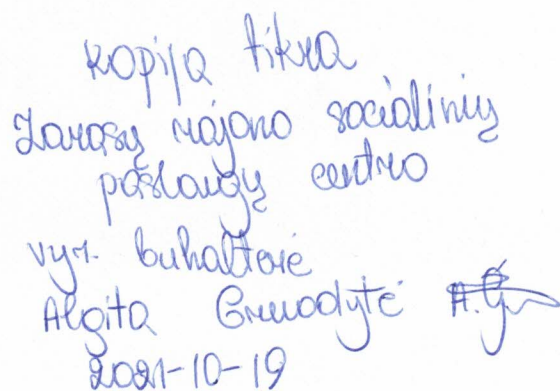 kopija tikra
Zarasų rajono socialinių
paslaugų centro
vyr. buhalterė
Algita Gruodytė A. Gr
2021-10-19